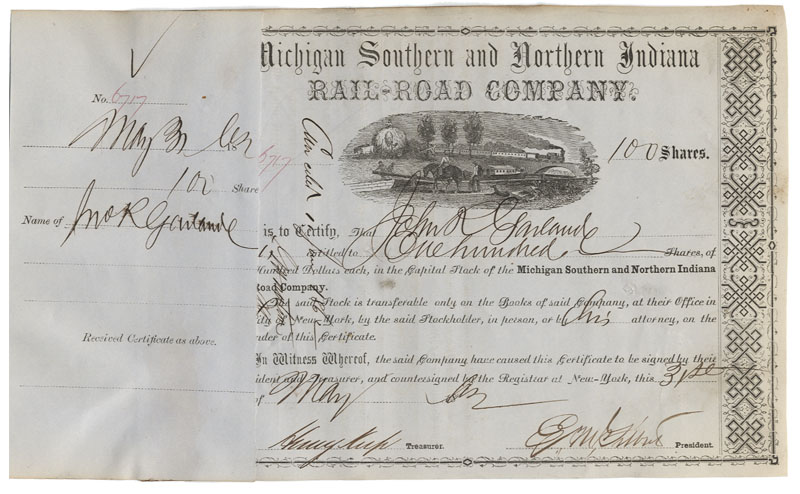 No. 6717
May 31
18
100 Share
Name of Jno R Garland
Received Certificate as above.
Michigan Southern and Northern Indiana
RAIL-ROAD COMPANY.
6717
100 Shares.
is to Certify, That John R Garland
entitled to One hundred Shares, of
Hundred Dollars each, in the Capital Stock of the Michigan Southern and Northern Indiana
Road Company.
said Stock is transferable only on the Books of said Company, at their Office in
City of New-York, by the said Stockholder, in person, or by his attorney, on the
nder of this Certificate.
In Witness Whereof, the said Company have caused this Certificate to be signed by their
ident and Treasurer, and countersigned by the Registrar at New-York, this 31st
of May
Henry Keep Treasurer.
President.